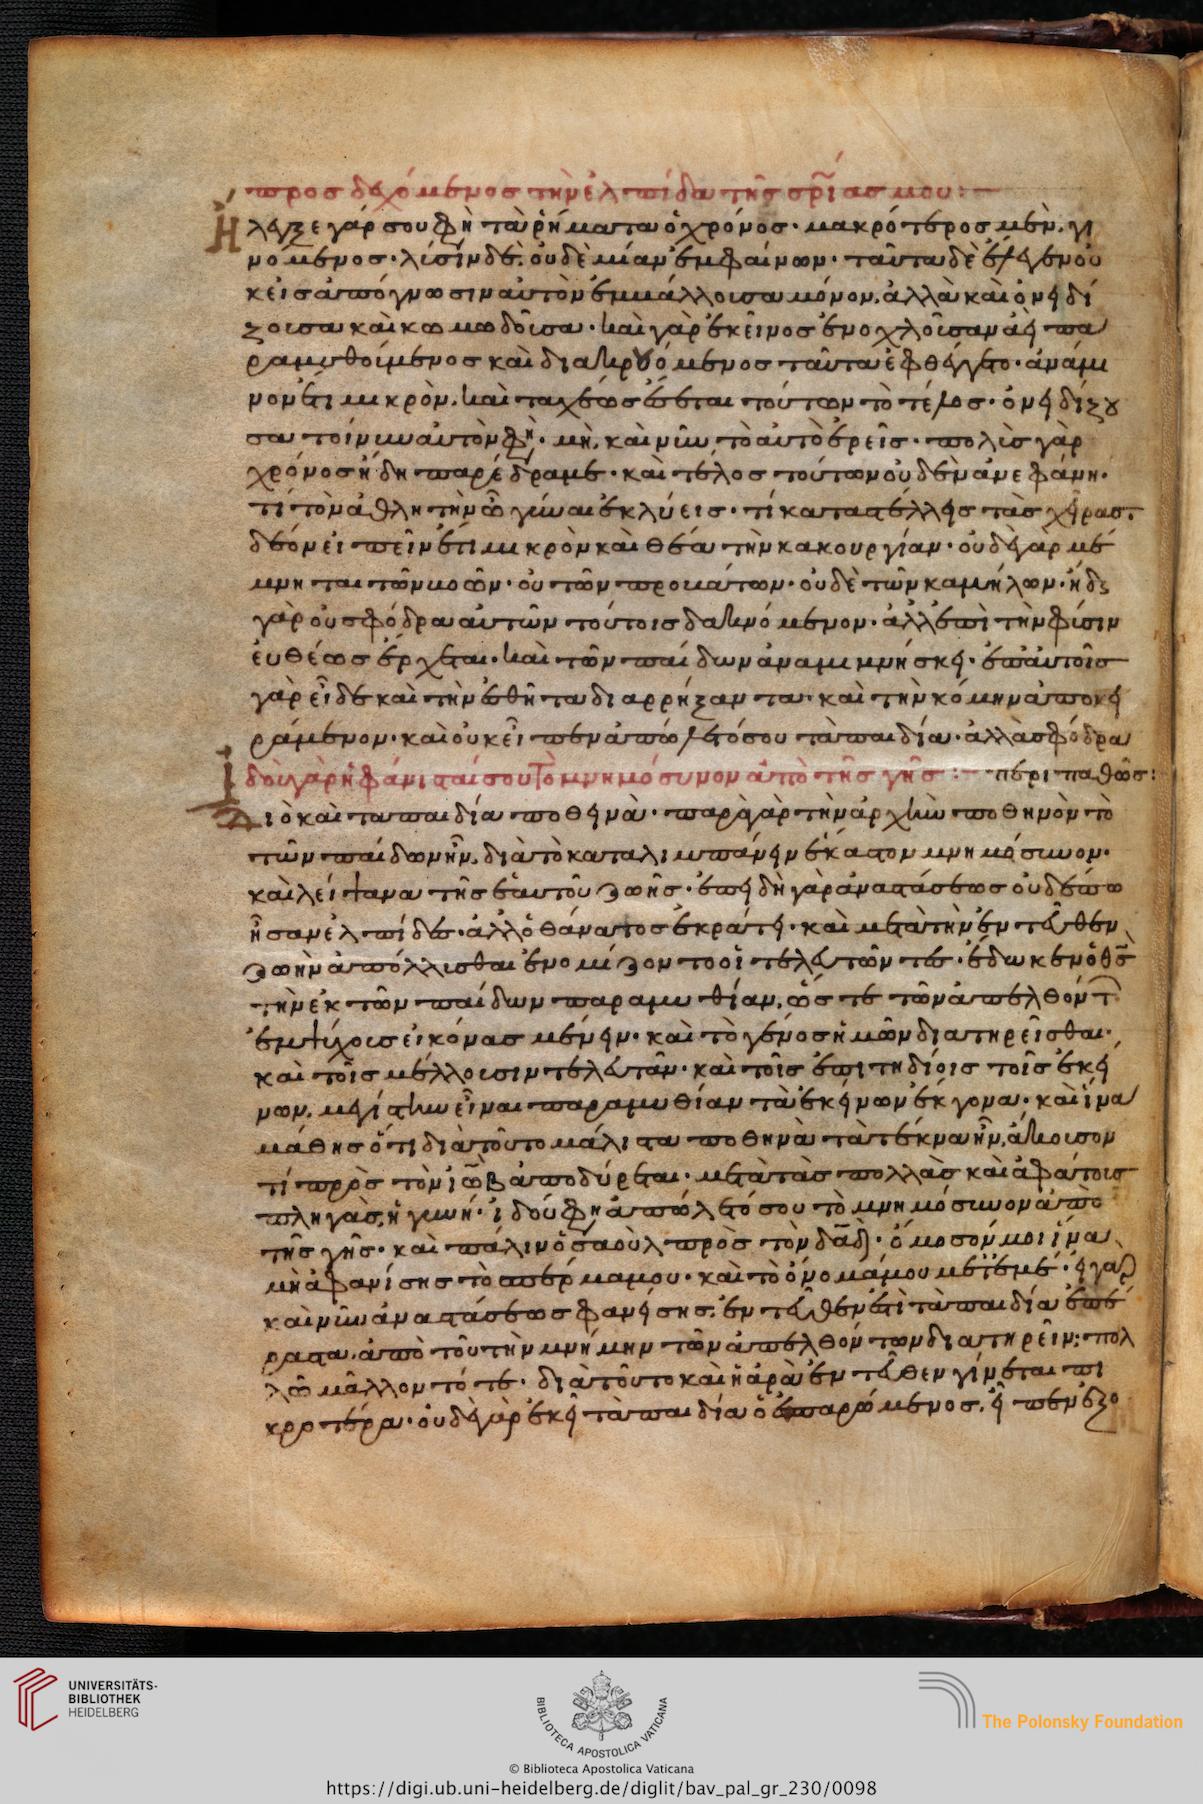 προσδεχόμενος τὴν ἐλπίδα τῆς σρ̅ίας μου:
Ἤλεγξε γάρ σου φη τὰ ῥήματα ὁ χρόνος· μακρότερος μὲν γι
νόμενος· λύσιν δὲ οὐδεμίαν ἐμφαίνων· ταῦτα δὲ ἔλεγεν οὐ
κ εἰς ἀπόγνωσιν αὐτὸν ἐμβάλλουσα μόνον, ἀλλὰ καὶ ὀνειδί
ζουσα καὶ κωμωδοῦσα· καὶ γὰρ ἐκεῖνος ἐνοχλοῦσαν ἀεὶ πα
ραμυθούμενος καὶ διακρουόμενος ταῦτα ἐφθέγγετο· ἀνάμει
νον ἔτι μικρὸν, καὶ ταχέως ἔσται τούτων τὸ τέλος· ὀνειδίζου
σα τοίνυν αὐτόν φη· μὴ καὶ νῦν τὸ αὐτὸ ἐρεῖς· πολὺς γὰρ
χρόνος ἤδη παρέδραμε· καὶ τέλος τούτων οὐδὲν ἀνεφάνη·
τί τὸν ἀθλητὴν ὦ γύναι ἐκλύεις· τί καταστέλλεις τὰς χεῖρας·
δέον εἰπεῖν ἔτι μικρὸν καὶ θέα τὴν κακουργίαν· οὐδὲ γὰρ μέ
μνηται τῶν βοῶν· οὐ τῶν προβάτων· οὐδὲ τῶν καμήλων· ἤδει
γὰρ οὐ σφόδρα αὐτῶν τούτοις δακνόμενον· ἀλλ' ἐπὶ τὴν φύσιν
εὐθέως ἔρχεται· καὶ τῶν παίδων ἀναμιμνήσκει· ἐπ' αὐτοῖς
γὰρ εἶδε καὶ τὴν ἐσθῆτα διαρρήξαντα· καὶ τὴν κόμην ἀποκει
ράμενον· καὶ οὐκ εἶπεν ἀπώλετό σου τὰ παιδία· ἀλλὰ σφόδρα
ἰδοὺ γὰρ ἠφάνισταί σου τὸ μνημόσυνον ἀπὸ τῆς γῆς: περιπαθῶς:
Διὸ καὶ τὰ παιδία ποθεινὰ· παρὰ γὰρ τὴν ἀρχὴν ποθεινὸν τὸ
τῶν παίδων ἦν, διὰ τὸ καταλιμπάνειν ἕκαστον μνημόσυνον·
καὶ λείψανα τῆς ἑαυτοῦ ζωῆς· ἐπειδὴ γὰρ ἀναστάσεως οὐδέπω
ἦσαν ἐλπίδες· ἀλλ' ὁ θάνατος ἐκράτει· καὶ μετὰ τὴν ἐντεῦθεν
ζωὴν ἀπόλλυσθαι ἐνόμιζον τοὺς τελευτῶντας· ἔδωκεν ὁ θς̅
τὴν ἐκ τῶν παίδων παραμυθίαν, ὥστε τῶν ἀπελθόντ
ἐμψύχους εἰκόνας μένειν· καὶ τὸ γένος ἡμῶν διατηρεῖσθαι·
καὶ τοῖς μέλλουσιν τελευτᾶν· καὶ τοῖς ἐπιτηδείοις τοῖς ἐκεί
νων, μεγίστην εἶναι παραμυθίαν τὰ ἐκείνων ἔκγονα· καὶ ἵνα
μάθης ὅτι διὰ τοῦτο μάλιστα ποθεινὰ τὰ τέκνα ἦν, ἄκουσον
τί πρὸς τὸν ἰὼβ ἀποδύρεται· μετὰ τὰς πολλὰς καὶ ἀφάτους
πληγὰς, ἡ γυνή· ἰδού φη ἀπώλετό σου τὸ μνημόσυνον ἀπὸ
τῆς γῆς· καὶ πάλιν ὁ σαοὺλ πρὸς τὸν δα̅δ· ὄμοσόν μοι ἵνα
μὴ ἀφανίσης τὸ σπέρμα μου· καὶ τὸ ὄνομά μου μετ' ἐμέ· εἰ γὰρ
καὶ νῦν ἀναστάσεως φανείσης, ἐντεῦθεν ἔτι τὰ παιδία ἐπέ
ραστα, ἀπὸ τοῦ τὴν μνήμην τῶν ἀπελθόντων διατηρεῖν: πολ
λῶ μᾶλλον τότε· διὰ τοῦτο καὶ ἡ ἀρὰ ἐντεῦθεν γίνεται πι
κροτέρα· οὐδὲ γὰρ ἐκεῖ τὰ παιδία ὁ ἐπαρώμενος, εἶπεν ἐξο
UNIVERSITÄTS-
BIBLIOTHEK
HEIDELBERG
BIBLIOTECA APOSTOLICA VATICANA
The Polonsky Foundation
© Biblioteca Apostolica Vaticana
https://digi.ub.uni-heidelberg.de/diglit/bav_pal_gr_230/0098